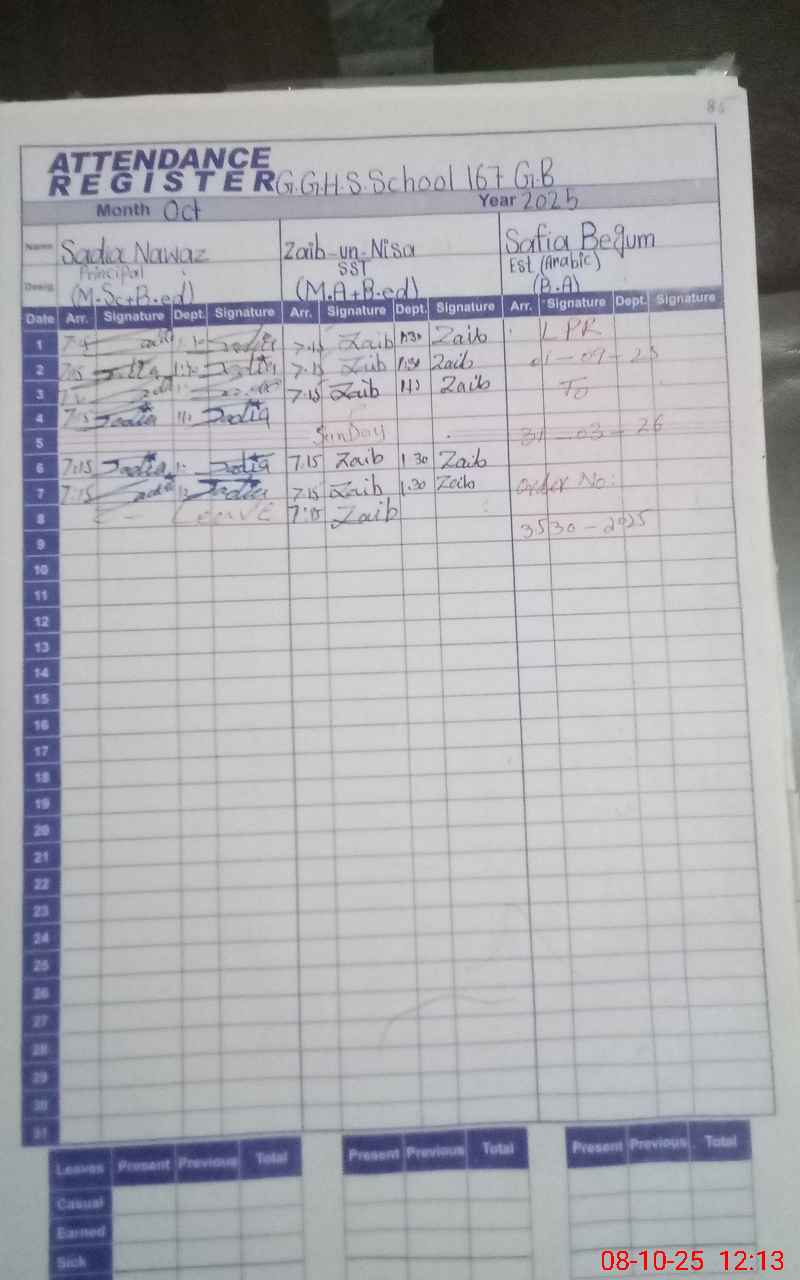 ATTENDANCE
REGISTER G.G.H.S. School 167 G.B
Month Oct Year 2025
Name Sadia Nawaz Zaib-un-Nisa Safia Begum
Principal SST Est (Arabic)
Desig. (M.Sc+B.ed) (M.A+B.ed) (B.A)
Date Arr. Signature Dept. Signature Arr. Signature Dept. Signature Arr. Signature Dept. Signature
1 7:15 Zaib 1:30 Zaib LPR
2 7:15 Zaib 1:30 Zaib 01-09-25
3 7:15 Zaib Zaib To
4 7:15 Sadia Sadia
5 Sunday 31-03-26
6 7:15 Sadia Sadia 7.15 Zaib 1.30 Zaib
7 7:15 Sadia Sadia 7.15 Zaib 1.30 Zaib Order No:
8 Leave 7:15 Zaib
9 3530-2025
10
11
12
13
14
15
16
17
18
19
20
21
22
23
24
25
26
27
28
29
30
31
Leaves Present Previous Total Present Previous Total Present Previous Total
Casual
Earned
Sick
08-10-25 12:13